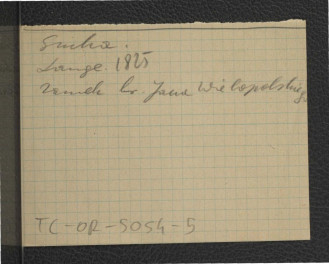 Sucha.
Lange. 1825
Zamek hr. Jana Wielopolskiego
TC-OR-5054-5